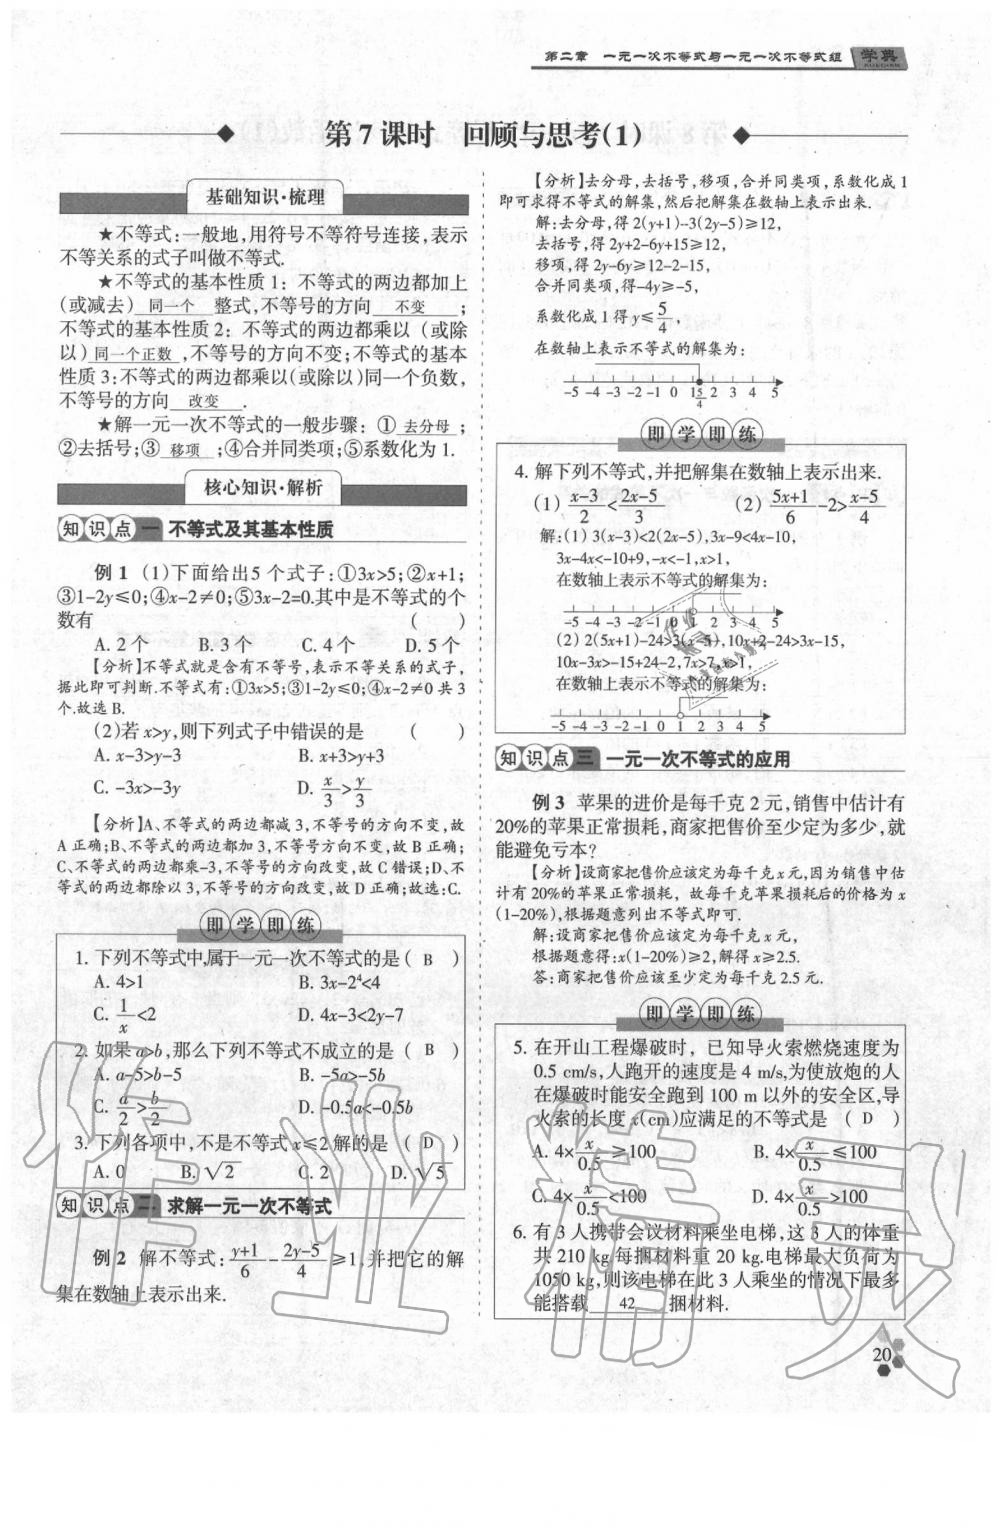 第二章 一元一次不等式与一元一次不等式组 学典
第 7 课时 回顾与思考(1)
基础知识·梳理
★不等式:一般地,用符号不等符号连接,表示
不等关系的式子叫做不等式.
★不等式的基本性质 1: 不等式的两边都加上
(或减去) 同一个 整式,不等号的方向 不变 ;
不等式的基本性质 2: 不等式的两边都乘以 (或除
以) 同一个正数 ,不等号的方向不变;不等式的基本
性质 3:不等式的两边都乘以(或除以)同一个负数,
不等号的方向 改变 .
★解一元一次不等式的一般步骤: ① 去分母 ;
②去括号;③ 移项 ;④合并同类项;⑤系数化为 1.
核心知识·解析
知识点一 不等式及其基本性质
例 1 (1)下面给出5 个式子:①3x>5;②x+1;
③1-2y≤0;④x-2≠0;⑤3x-2=0.其中是不等式的个
数有 ( )
A. 2 个 B. 3 个 C. 4 个 D. 5 个
【分析】不等式就是含有不等号,表示不等关系的式子,
据此即可判断.不等式有:①3x>5;③1-2y≤0;④x-2≠0 共 3
个.故选 B.
(2)若 x>y,则下列式子中错误的是 ( )
A. x-3>y-3 B. x+3>y+3
C. -3x>-3y D. x/3>y/3
【分析】A、不等式的两边都减 3,不等号的方向不变,故
A 正确;B、不等式的两边都加 3,不等号方向不变,故 B 正确;
C、不等式的两边都乘-3,不等号的方向改变,故 C 错误;D、不
等式的两边都除以 3,不等号的方向改变,故 D 正确;故选:C.
即学即练
1. 下列不等式中,属于一元一次不等式的是 ( B )
A. 4>1 B. 3x-2⁴<4
C. 1/x<2 D. 4x-3<2y-7
2. 如果 a>b,那么下列不等式不成立的是 ( B )
A. a-5>b-5 B. -5a>-5b
C. a/2>b/2 D. -0.5a<-0.5b
3. 下列各项中,不是不等式 x≤2 解的是 ( D )
A. 0 B. √2 C. 2 D. √5
知识点二 求解一元一次不等式
例 2 解不等式: (y+1)/6-(2y-5)/4≥1,并把它的解
集在数轴上表示出来.
【分析】去分母,去括号,移项,合并同类项,系数化成 1
即可求得不等式的解集,然后把解集在数轴上表示出来.
解:去分母,得 2(y+1)-3(2y-5)≥12,
去括号,得 2y+2-6y+15≥12,
移项,得 2y-6y≥12-2-15,
合并同类项,得-4y≥-5,
系数化成 1 得 y≤5/4,
在数轴上表示不等式的解集为:
-5 -4 -3 -2 -1 0 1 5/4 2 3 4 5
即学即练
4. 解下列不等式,并把解集在数轴上表示出来.
(1) (x-3)/2<(2x-5)/3 (2) (5x+1)/6-2>(x-5)/4
解:(1) 3(x-3)<2(2x-5),3x-9<4x-10,
3x-4x<-10+9,-x<-1,x>1,
在数轴上表示不等式的解集为:
-5 -4 -3 -2 -1 0 1 2 3 4 5
(2) 2(5x+1)-24>3(x-5),10x+2-24>3x-15,
10x-3x>-15+24-2,7x>7,x>1,
在数轴上表示不等式的解集为:
-5 -4 -3 -2 -1 0 1 2 3 4 5
知识点三 一元一次不等式的应用
例 3 苹果的进价是每千克 2 元,销售中估计有
20%的苹果正常损耗,商家把售价至少定为多少,就
能避免亏本?
【分析】设商家把售价应该定为每千克 x 元,因为销售中估
计有 20%的苹果正常损耗, 故每千克苹果损耗后的价格为 x
(1-20%),根据题意列出不等式即可.
解:设商家把售价应该定为每千克 x 元,
根据题意得:x(1-20%)≥2,解得 x≥2.5.
答:商家把售价应该至少定为每千克 2.5 元.
即学即练
5. 在开山工程爆破时, 已知导火索燃烧速度为
0.5 cm/s,人跑开的速度是 4 m/s,为使放炮的人
在爆破时能安全跑到 100 m 以外的安全区,导
火索的长度 x(cm)应满足的不等式是 ( D )
A. 4×x/0.5≥100 B. 4×x/0.5≤100
C. 4×x/0.5<100 D. 4×x/0.5>100
6. 有 3 人携带会议材料乘坐电梯,这 3 人的体重
共 210 kg,每捆材料重 20 kg.电梯最大负荷为
1050 kg,则该电梯在此 3 人乘坐的情况下最多
能搭载 42 捆材料.
20
作业精灵